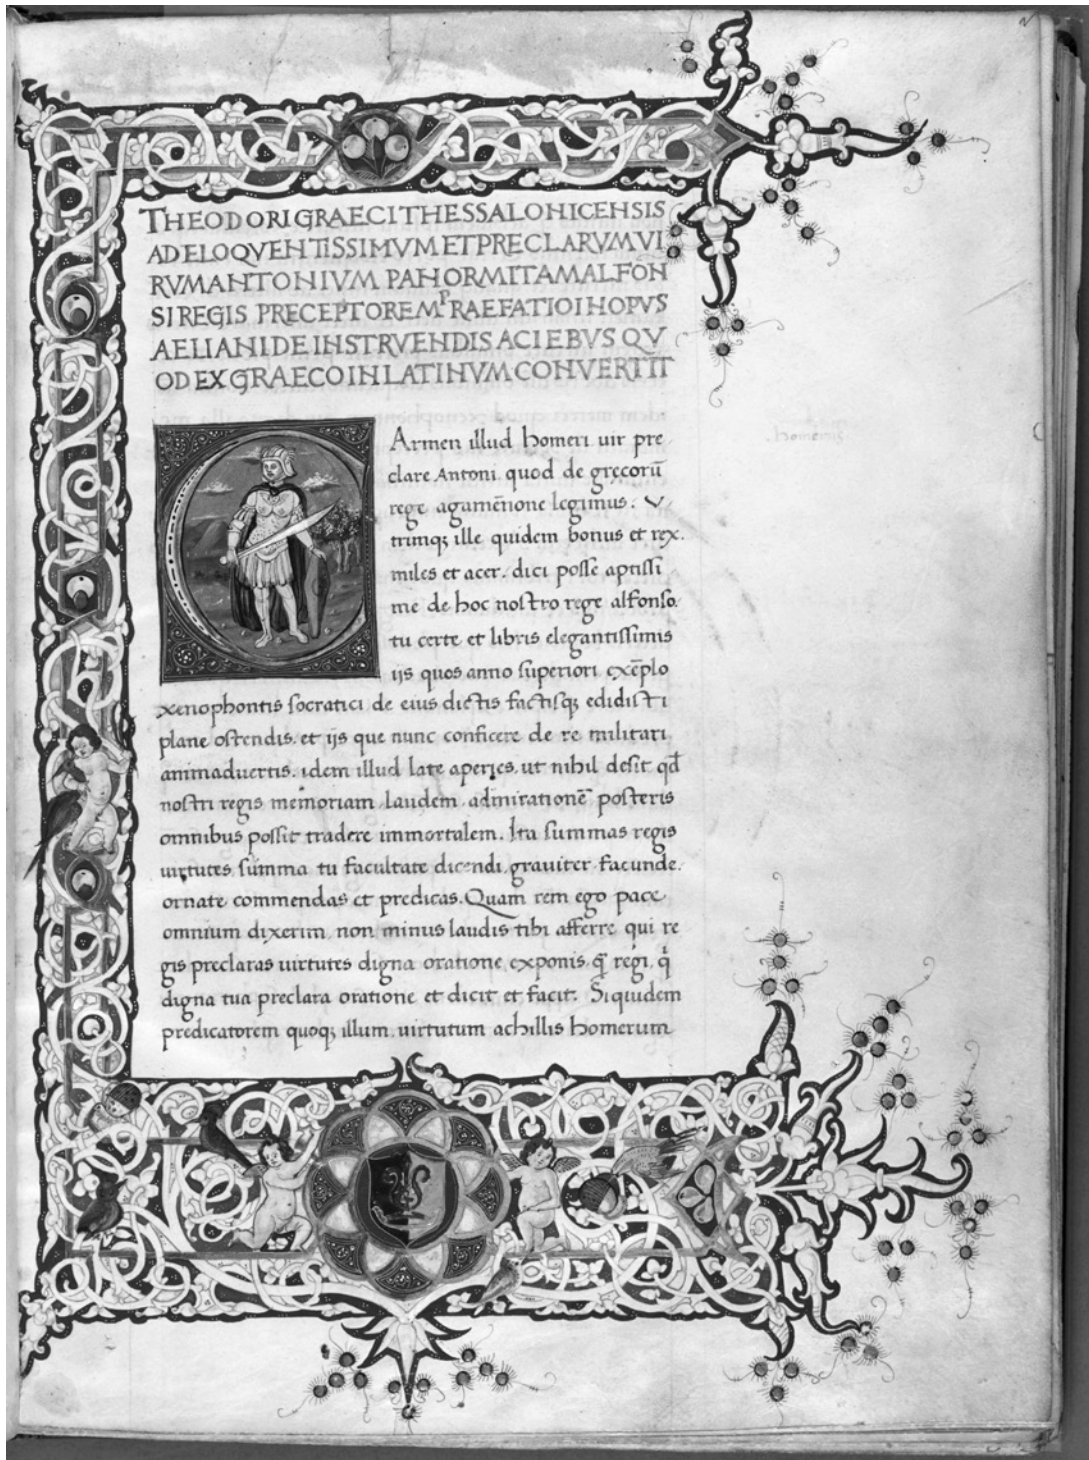 THEODORI GRAECI THESSALONICENSIS
AD ELOQVENTISSIMVM ET PRECLARVM VI
RVM ANTONIVM PANORMITAM ALFON
SI REGIS PRECEPTOREM PRAEFATIO IN OPVS
AELIANI DE INSTRVENDIS ACIEBVS QV
OD EX GRAECO IN LATINVM CONVERTIT
CArmen illud homeri uir pre
clare Antoni quod de gręcorū
rege agamēnone legimus. V
trinq; ille quidem bonus et rex.
miles et acer. dici posse aptissi
me de hoc nostro rege alfonso.
tu certe et libris elegantissimis
ijs quos anno superiori exēplo
xenophontis socratici de eius dictis factisq; edidisti
plane ostendis. et ijs que nunc conficere de re militari
animaduertis. idem illud late aperies. ut nihil desit qđ
nostri regis memoriam laudem admirationē posteris
omnibus possit tradere immortalem. Ita summas regis
uirtutes summa tu facultate dicendi grauiter facunde.
ornate commendas et predicas. Quam rem ego pace
omnium dixerim non minus laudis tibi afferre qui re
gis preclaras uirtutes digna oratione exponis. q̄ regi. q
digna tua preclara oratione et dicit et facit. Siquidem
predicatorem quoq; illum uirtutum achillis homerum